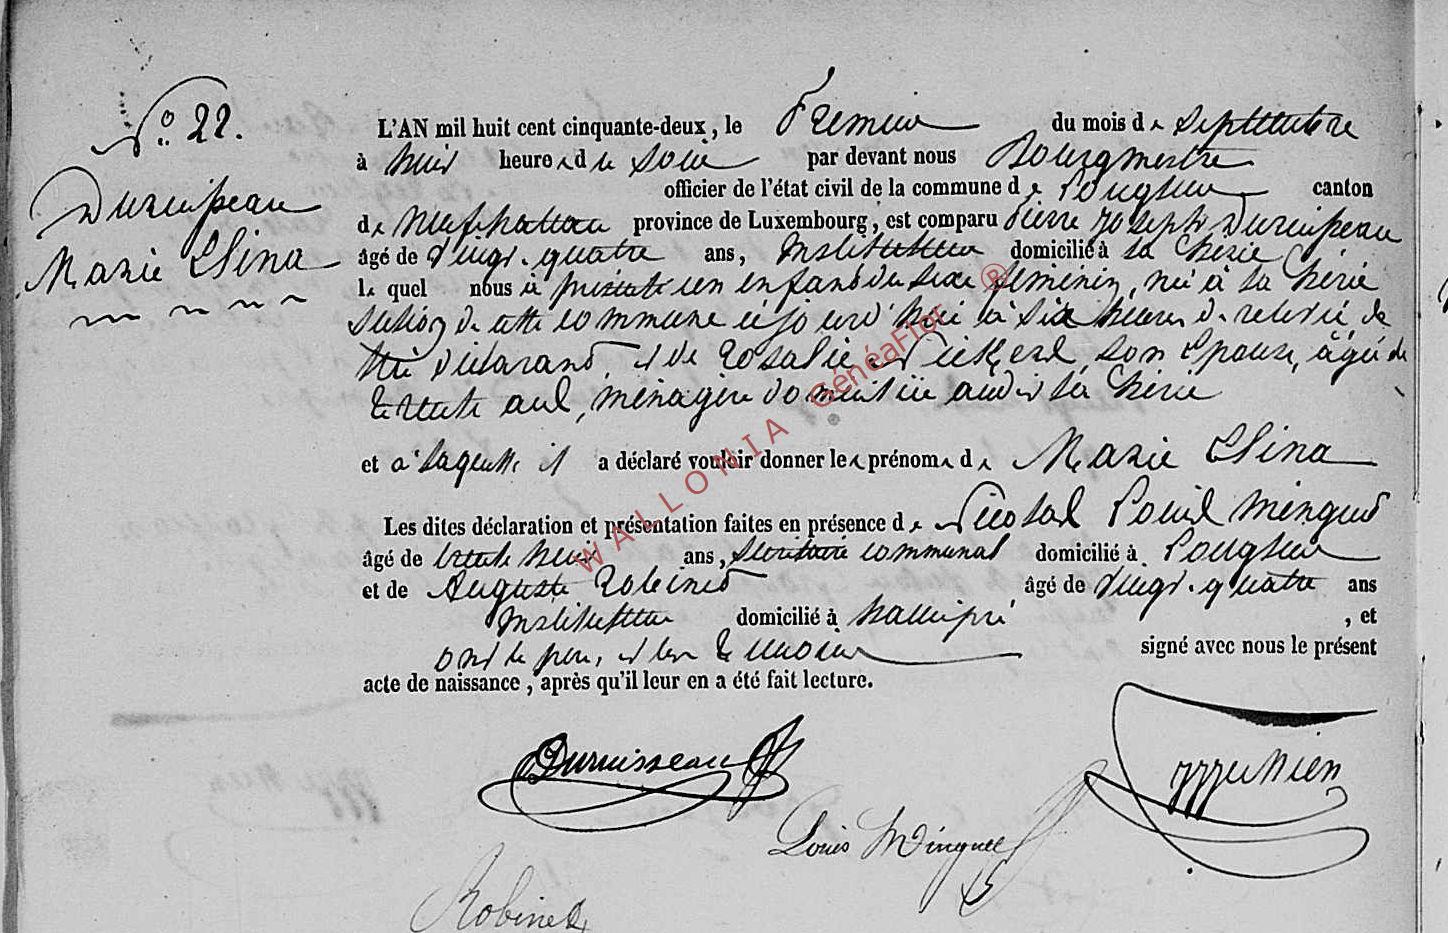 No 22.
Duruisseau
Marie Elina
L'AN mil huit cent cinquante-deux, le Premier du mois de Septembre
à huit heures de soir par devant nous Bourgmestre
officier de l'état civil de la commune de Lougsur canton
de Neufchateau province de Luxembourg, est comparu Pierre Joseph Duruisseau
âgé de vingt-quatre ans, Instituteur domicilié à la Chérie
le quel nous a présenté un enfant du sexe féminin, né à la Chérie
section de cette commune cejourd'hui à six heures de relevée, de
lui déclarant, et de Rosalie son épouse, âgée de
trente ans, ménagère domiciliée audit la Chérie
et à laquelle il a déclaré vouloir donner les prénoms de Marie Elina
Les dites déclaration et présentation faites en présence de Nicolas Louis Minguet
âgé de trente huit ans, secrétaire communal domicilié à Lougsur
et de Auguste Robinet âgé de vingt-quatre ans
Instituteur domicilié à , et
ont le père, et les témoins signé avec nous le présent
acte de naissance, après qu'il leur en a été fait lecture.
Duruisseau
Louis Minguet
Robinet
WALLONIA GénéaFlor ®